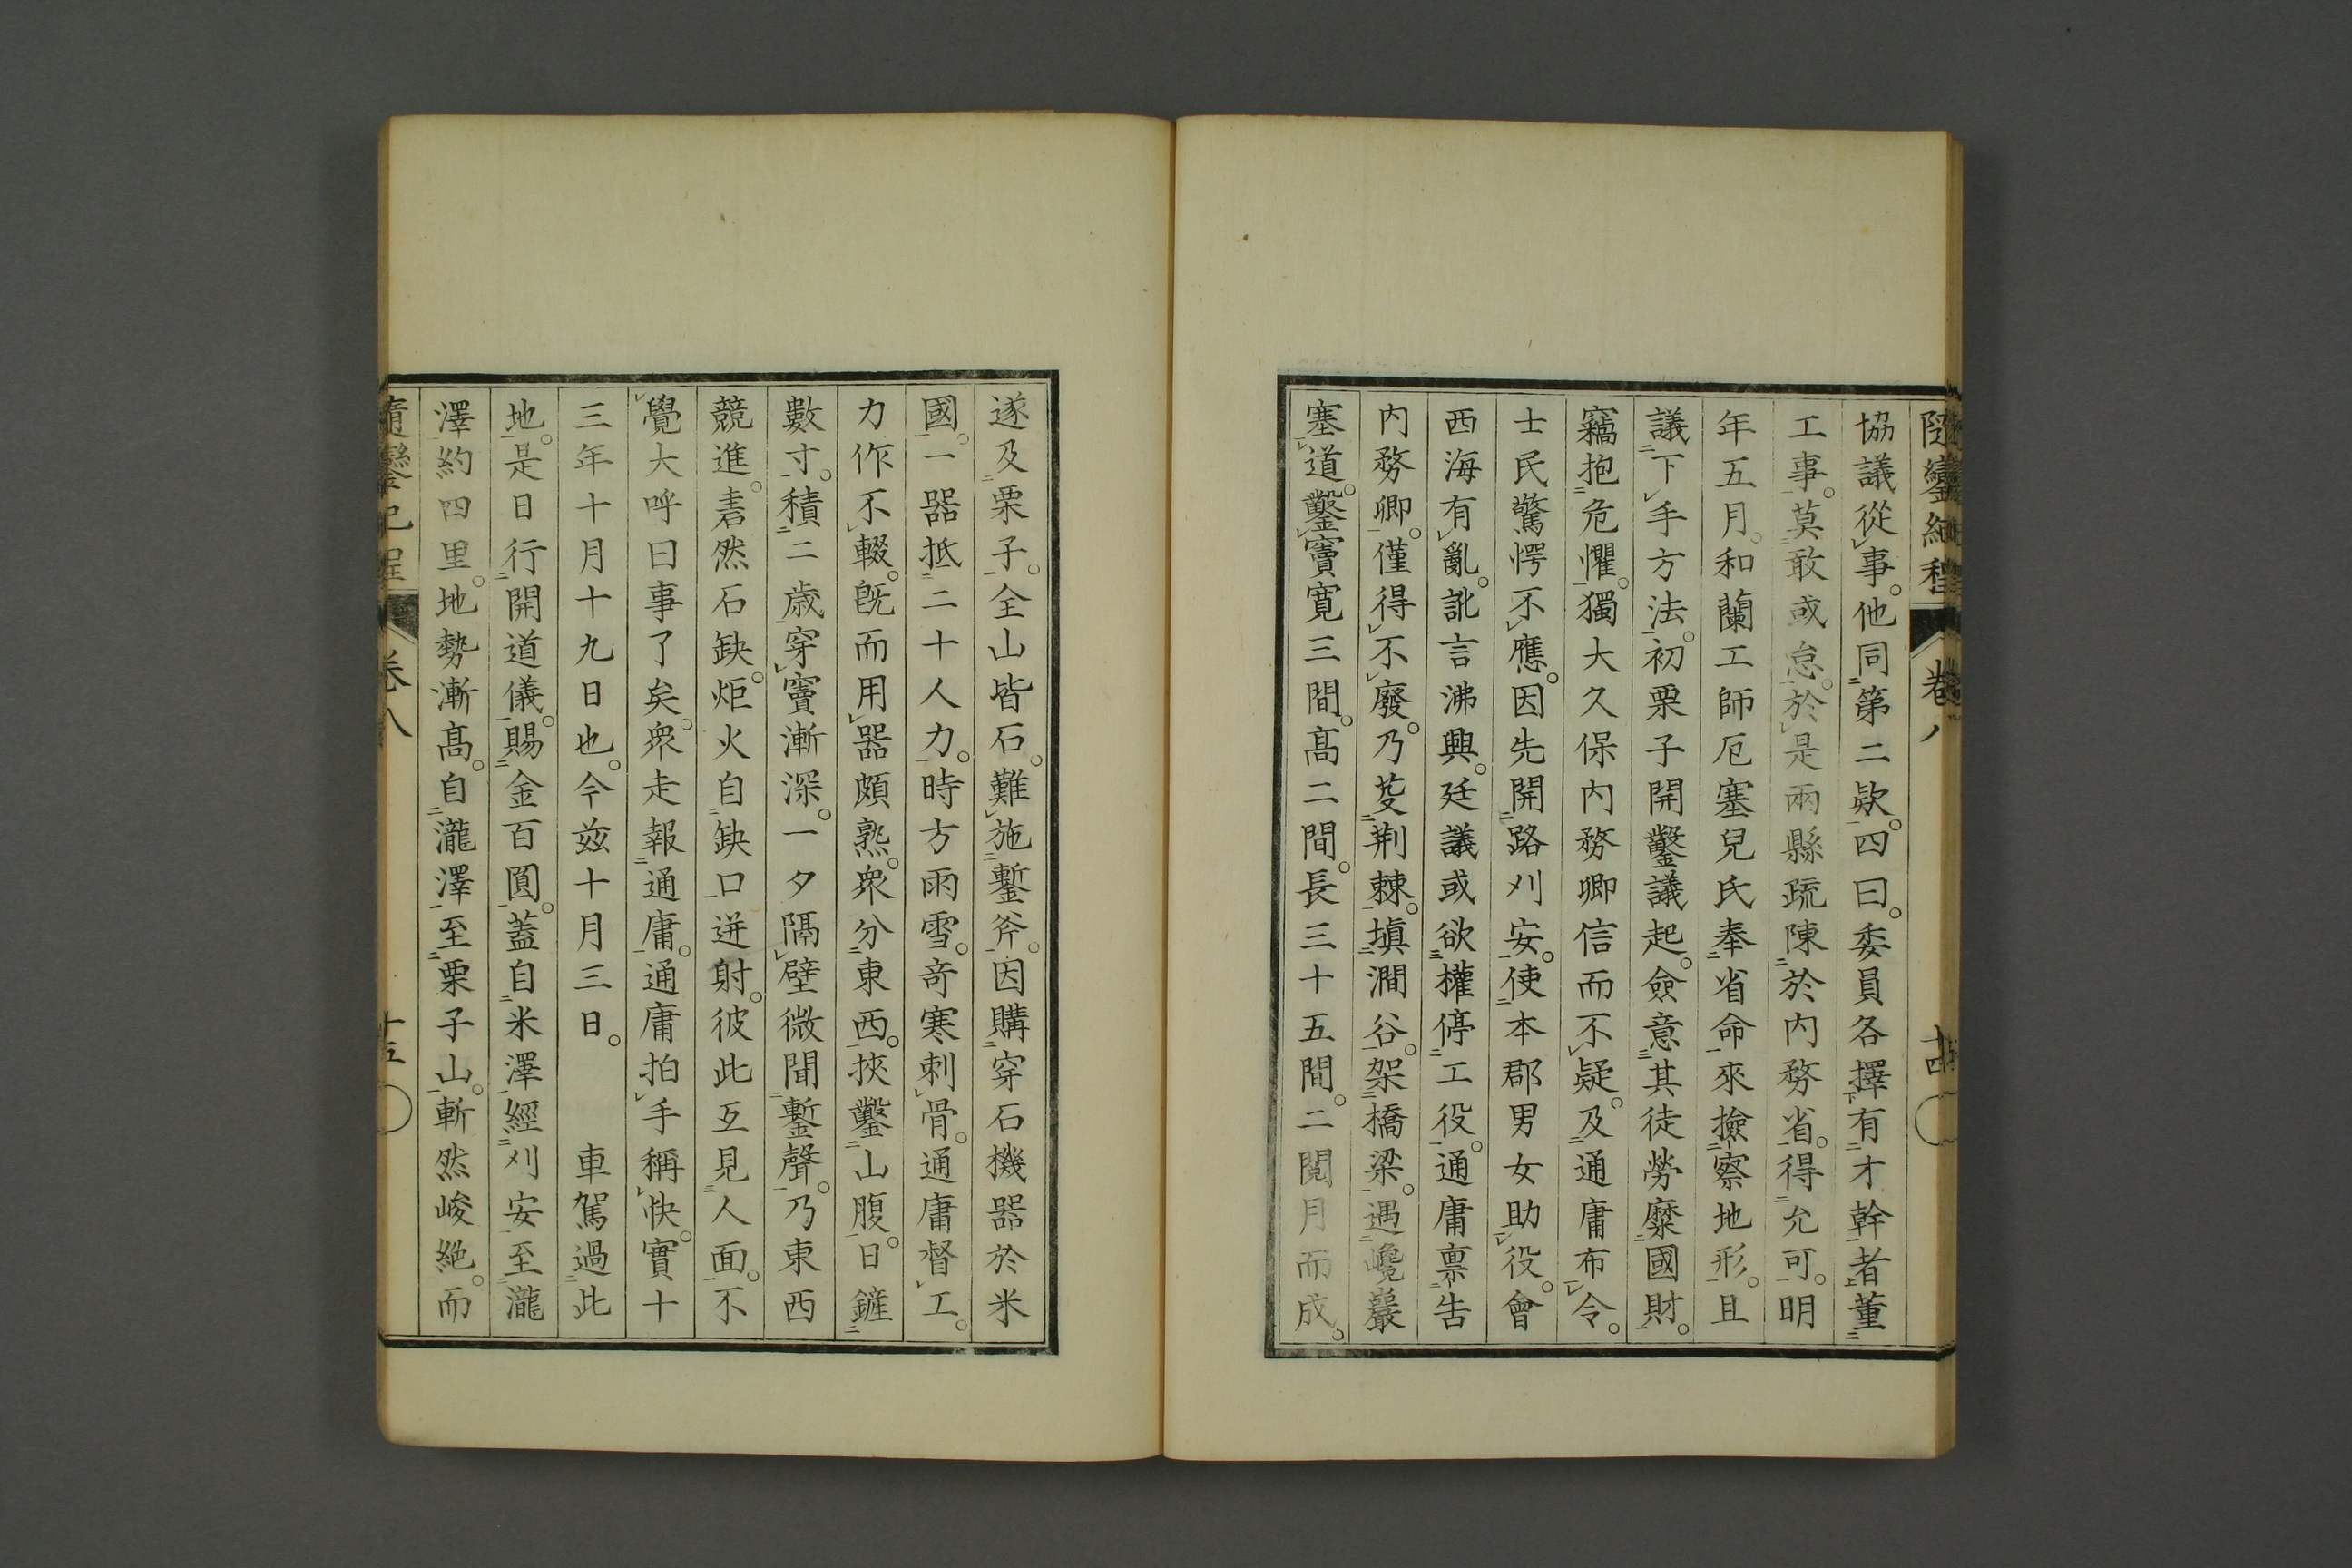 隨鑾紀程 卷八 十四
協議從事。他同第二欵。四曰。委員各擇有才幹者董
工事。莫敢或怠。於是兩縣疏陳於内務省。得允可。明
年五月。和蘭工師厄塞兒氏奉省命來撿察地形。且
議下手方法。初栗子開鑿議起。僉意其徒勞糜國財。
竊抱危懼。獨大久保内務卿信而不疑。及通庸布令。
士民驚愕不應。因先開路刈安。使本郡男女助役。會
西海有亂。訛言沸興。廷議或欲權停工役。通庸禀告
内務卿。僅得不廢。乃芟荆棘。塡澗谷。架橋梁。遇巉巖
塞道。鑿竇寛三間。髙二間。長三十五間。二閲月而成。
遂及栗子。全山皆石。難施鏨斧。因購穿石機器於米
國。一器抵二十人力。時方雨雪。竒寒刺骨。通庸督工。
力作不輟。旣而用器頗熟。衆分東西。挾鑿山腹。日鏟
數寸。積二歳穿竇漸深。一夕隔壁微聞鏨聲。乃東西
競進。砉然石缺。炬火自缺口迸射。彼此互見人面。不
覺大呼曰事了矣。衆走報通庸。通庸拍手稱快。實十
三年十月十九日也。今玆十月三日。 車駕過此
地。是日行開道儀。賜金百圓。蓋自米澤經刈安至瀧
澤約四里。地勢漸髙。自瀧澤至栗子山。嶄然峻絶。而
隨鑾紀程 卷八 十五